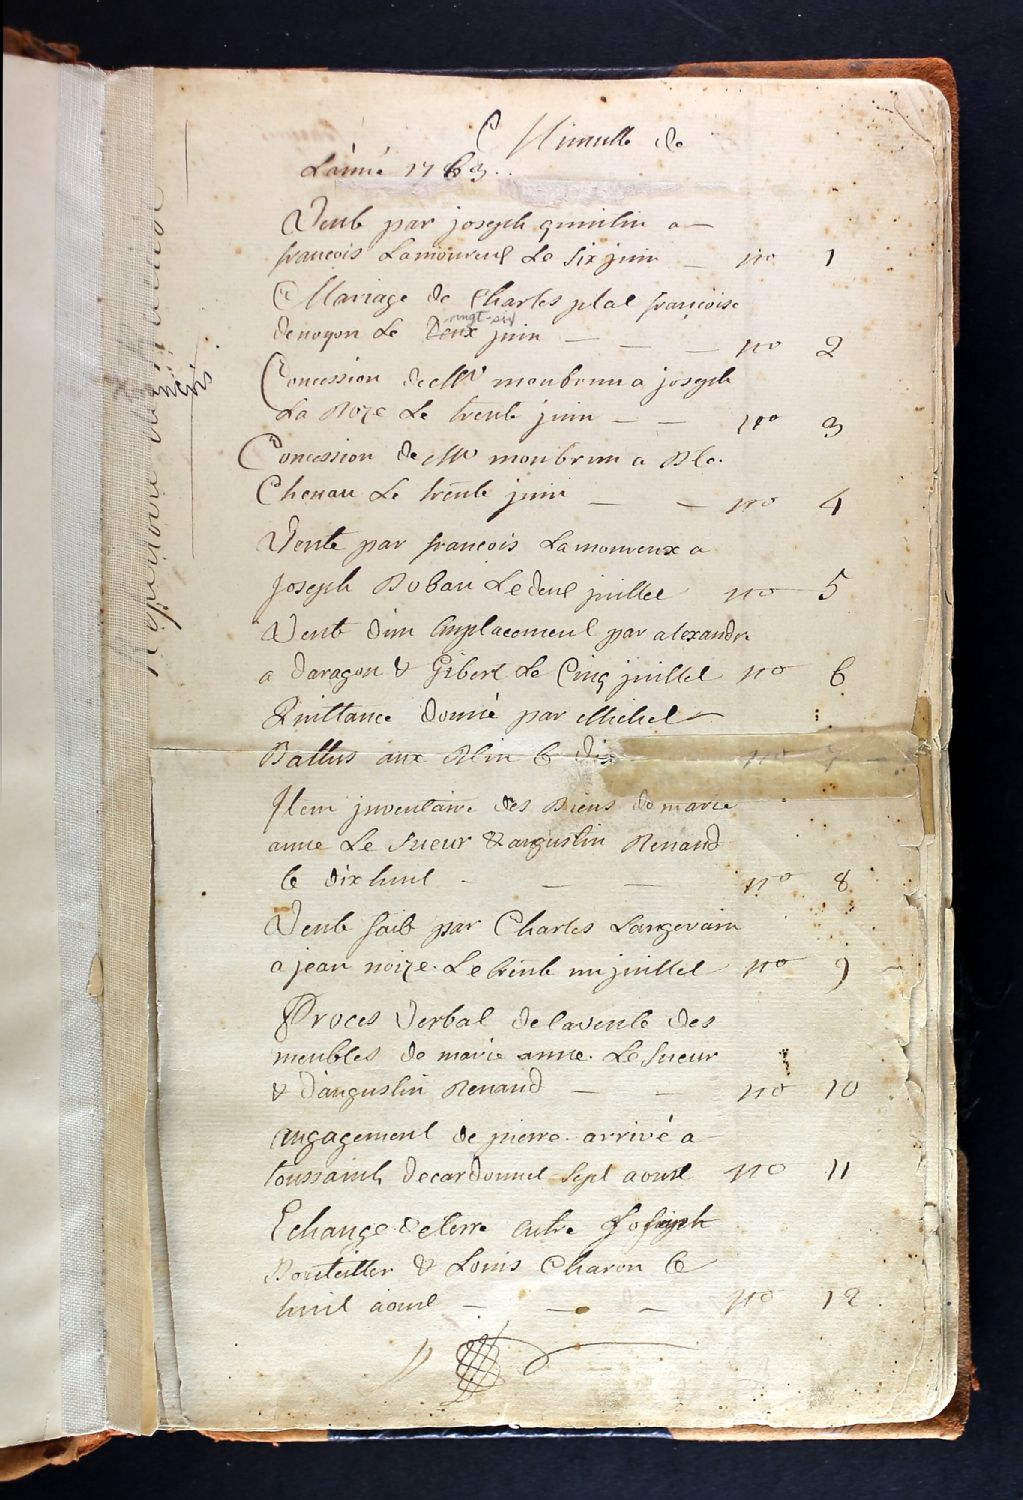 Minutte de
L'année 1763..
Vente par joseph quintin a
francois Lamoureux Le six juin no 1
Mariage de Charles plat francoise
denoyon Le Deux juin no 2
vingt-six
Concession de Mr monbrun a joseph
La Roze Le trente juin no 3
Concession de Mr monbrun a Ble.
Chenau Le trente juin no 4
Vente par francois Lamoureux a
joseph Robari Le deux juillet no 5
Vente d'un Emplacement par alexandre
a daragon & Gibert Le Cinq juillet no 6
Quittance donné par Michel
Ballus aux Blin le dix no 7
Item jnventaire des Biens de marie
anne Le Sueur & augustin Renaud
le dix huit no 8
Vente faite par Charles Langevain
a jean noize. Le trente un juillet no 9
Proces Verbal de la vente des
meubles de marie anne. Le Sueur
& d'augustin Renaud no 10
angagement de pierre arrivé a
toussaint decardonnet sept aoust no 11
Echange de terre entre Joseph
Bouteiller & Louis Charon le
huit aoust no 12